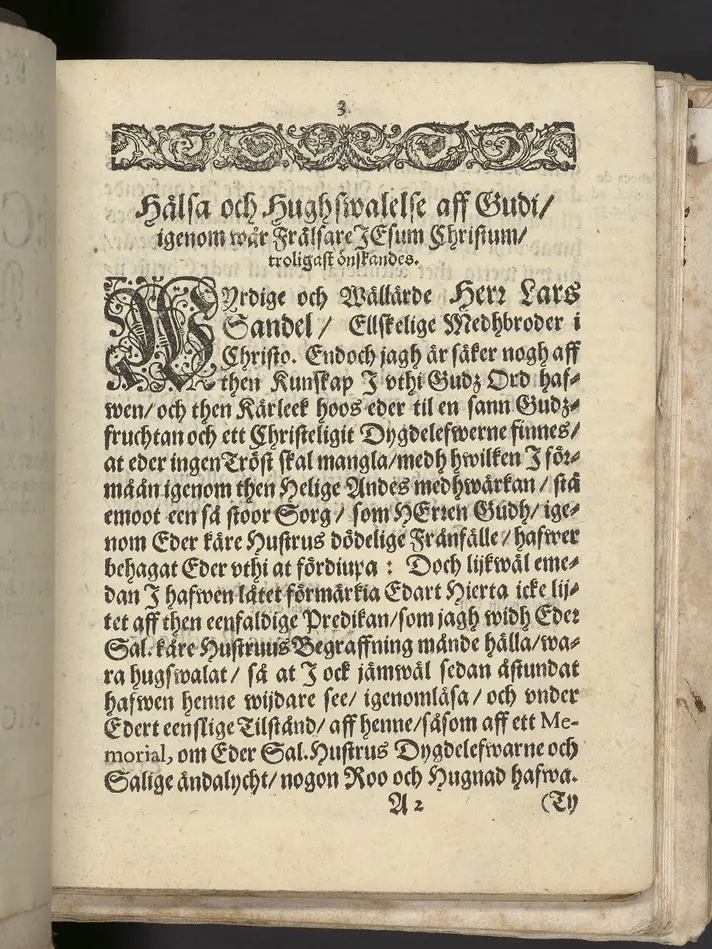 3
Hälsa och Hughswalelse aff Gudi/
igenom wår Frälsare JEsum Christum/
troligast önskandes.
WYrdige och Wällärde Herr Lars
Sandel / Ellskelige Medhbroder i
Christo. Endoch jagh är säker nogh aff
then Kunskap J vthi Gudz Ord haf⸗
wen/ och then Kärleek hoos eder til en sann Gudz⸗
fruchtan och ett Christeligit Dygdelefwerne finnes/
at eder ingen Tröst skal mangla/medh hwilken J för⸗
måån igenom then Helige Andes medhwärkan / stå
emoot een så stoor Sorg / som HErren Gudh/ ige⸗
nom Eder käre Hustrus dödelige Frånfälle / hafwer
behagat Eder vthi at fördiupa : Doch lijkwäl eme⸗
dan J hafwen låtet förmärkia Edart Hierta icke lij⸗
tet aff then eenfaldige Predikan/som jagh widh Eder
Sal. käre Hustruus Begraffning månde hålla/wa⸗
ra hugswalat / så at J ock jämwäl sedan åstundat
hafwen henne wijdare see/ igenomläsa / och vnder
Edert eenslige Tilstånd/ aff henne/såsom aff ett Me-
morial, om Eder Sal. Hustrus Dygdelefwarne och
Salige ändalycht/ nogon Roo och Hugnad hafwa.
A 2 (Ty